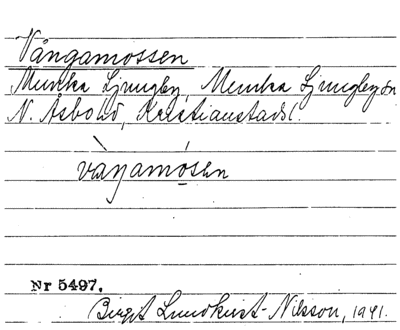 Vångamossen
Munka Ljungby, Munka Ljungby sn
N. Åsbohd, Kristianstads l.
vàŋamósen
Nr 5497.
Birgit Lundkvist-Nilsson, 1941.